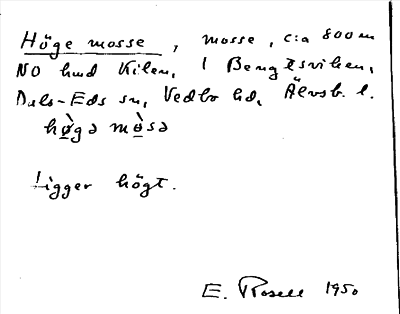 Höge mosse, mosse, c:a 800 m
NO hmd Kilen, i Bengtsviken,
Dals-Eds sn, Vedbo hd, Älvsb. l.
hø̀gə mø̀sə
Ligger högt.
E. Rosell 1950